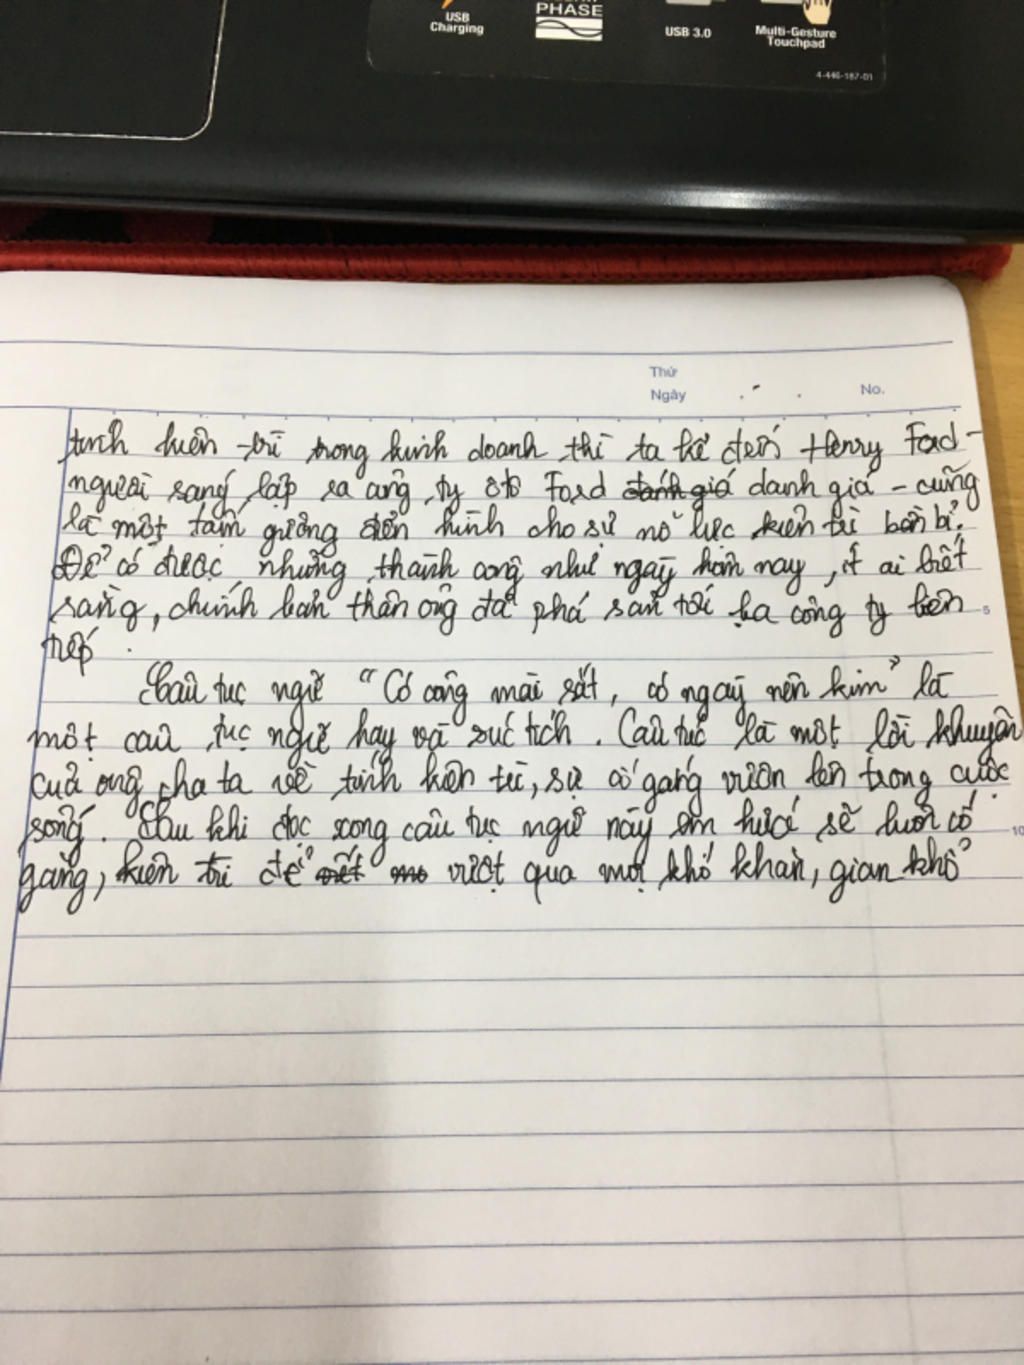 USB
Charging
PHASE
USB 3.0
Multi-Gesture
Touchpad
4-446-187-01
Thứ
Ngày
No.
tính kiên trì trong kinh doanh thì ta kể đến Henry Ford -
người sáng lập ra công ty ôtô Ford đánh giá danh giá - cũng
là một tấm gương điển hình cho sự nỗ lực kiên trì bền bỉ.
Để có được những thành công như ngày hôm nay, ít ai biết
rằng, chính bản thân ông đã phá sản tới ba công ty liên
tiếp.
Câu tục ngữ "Có công mài sắt, có ngày nên kim" là
một câu tục ngữ hay và súc tích. Câu tục là một lời khuyên
của ông cha ta về tính kiên trì, sự cố gắng vươn lên trong cuộc
sống. Sau khi đọc xong câu tục ngữ này em hứa sẽ luôn cố
gắng, kiên trì để vượt qua mọi khó khăn, gian khổ
5
10